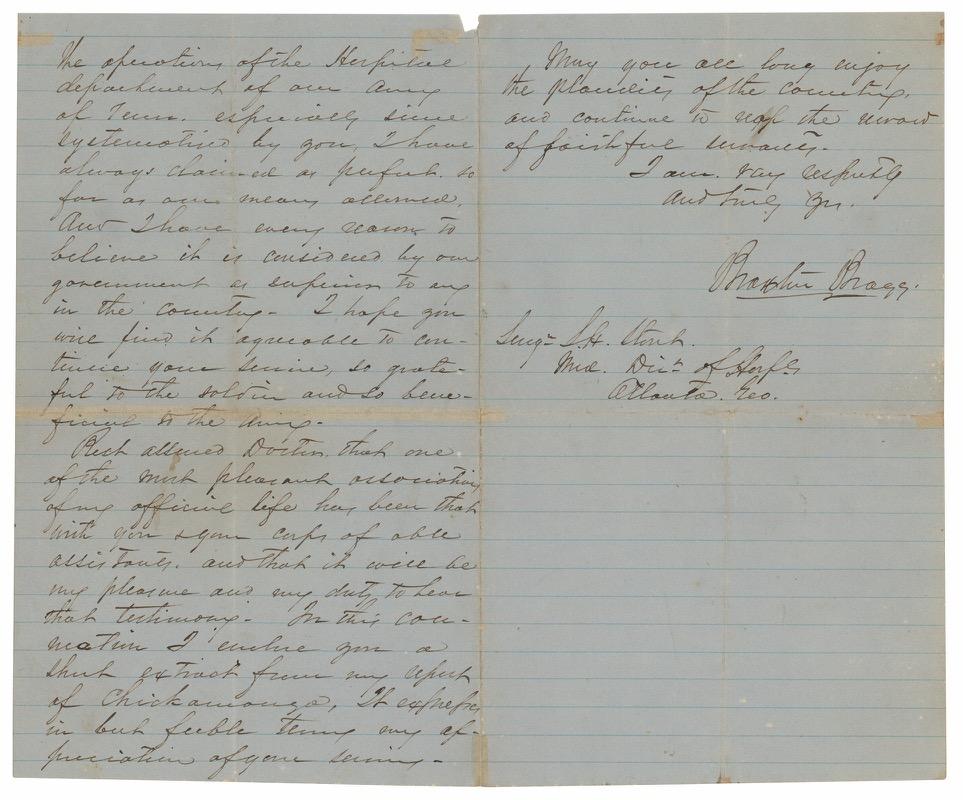 the operations of the Hospital
department of our army
of Tenn. especially since
systematised by you, I have
always claimed as perfect. so
far as our means allowed.
And I have every reason to
believe it is considered by our
government as superior to any
in the country - I hope you
will find it agreable to con-
tinue your service, so grate-
ful to the soldier and so bene-
ficial to the army -
Rest assured Doctor, that one
of the most pleasant associations
of my official life has been that
with you & your corps of able
assistants. and that it will be
my pleasure and my duty to bear
that testimony - In this con-
nection I enclose you a
short extract from my report
of Chickamauga, It expresses
in but feeble terms my ap-
preciation of your services -
May you all long enjoy
the plaudits of the country,
and continue to reap the reward
of faithful servants -
I am. very respectfly
and truly yrs.
Braxton Bragg.
Surgn S. H. Stout.
Med. Dirr. of Hospls
Atlanta. Geo.